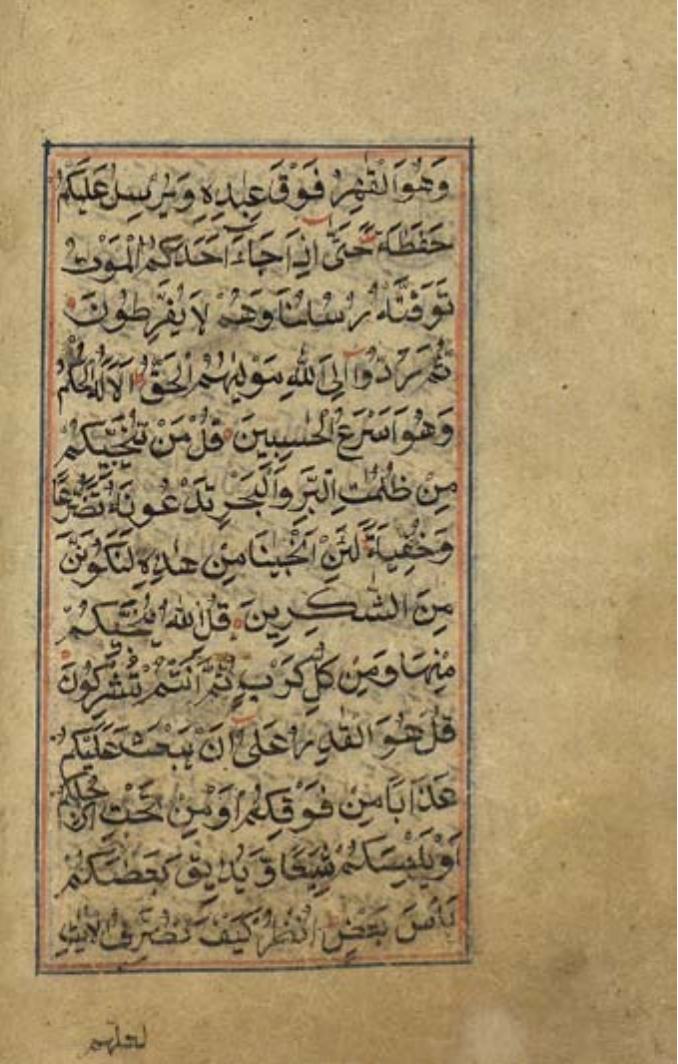 وَهُوَ الْقٰهِرُ فَوْقَ عِبٰدِهٖ وَيُرْسِلُ عَلَيْكُمْ
حَفَظَةً حَتّٰى اِذَا جَاءَ اَحَدَكُمُ الْمَوْتُ
تَوَفَّتْهُ رُسُلُنَا وَهُمْ لَا يُفَرِّطُونَ
ثُمَّ رُدُّوا اِلَى اللّٰهِ مَوْلٰيهُمُ الْحَقِّ اَلَا لَهُ الْحُكْمُ
وَهُوَ اَسْرَعُ الْحٰسِبِينَ قُلْ مَنْ يُنَجِّيكُمْ
مِنْ ظُلُمٰتِ الْبَرِّ وَالْبَحْرِ تَدْعُونَهُ تَضَرُّعًا
وَخُفْيَةً لَئِنْ اَنْجَيْنَا مِنْ هٰذِهٖ لَنَكُونَنَّ
مِنَ الشّٰكِرِينَ قُلِ اللّٰهُ يُنَجِّيكُمْ
مِنْهَا وَمِنْ كُلِّ كَرْبٍ ثُمَّ اَنْتُمْ تُشْرِكُونَ
قُلْ هُوَ الْقَادِرُ عَلٰى اَنْ يَبْعَثَ عَلَيْكُمْ
عَذَابًا مِنْ فَوْقِكُمْ اَوْ مِنْ تَحْتِ اَرْجُلِكُمْ
اَوْ يَلْبِسَكُمْ شِيَعًا وَيُذِيقَ بَعْضَكُمْ
بَأْسَ بَعْضٍ اُنْظُرْ كَيْفَ نُصَرِّفُ الْاٰيٰتِ
لعلهم